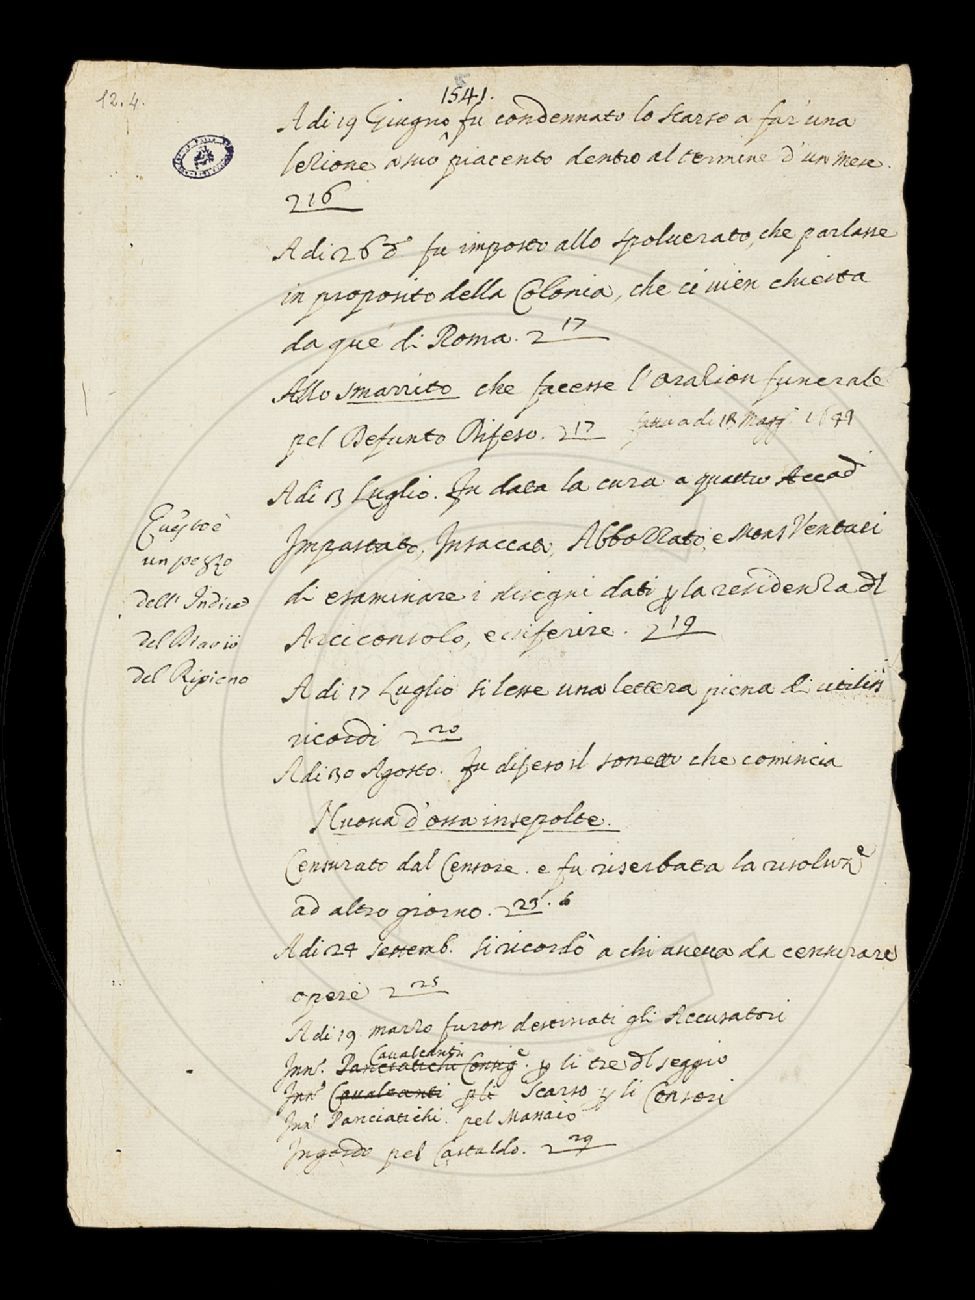 12.4.
1541.
A di 19 Giugno fu condennato lo Scarso a far una
lezione a suo piacento dentro al termine d'un mese.
216
A di 26 d.º fu imposto allo Spoluerato, che parlasse
in proposito della Colonia, che ci uien chiesta
da que' di Roma. 217
Allo Smarrito che facesse l'orazion funerale
pel Defunto Difeso. 217 fatta a di 18 Magg.
A di 13 Luglio. Fu data la cura a quattro Accad.
Impastato, Insaccato, Abbozzato, e Mons Venturi
di esaminare i disegni dati p la residenza dl
Arciconsolo, e riferire. 219
A di 17 Luglio si lesse una lettera piena di utiliss
ricordi 220
A di 30 Agosto. Fu difeso il sonetto che comincia
Nuova d'ossa insepolte.
Censurato dal Censore. e fu riserbata la risoluz.e
ad altro giorno. 223. 6
A di 24 Settemb. Si ricordò a chi aueua da censurare
opere 225
A di 19 marzo furon destinati gli Accusatori
Cavalcanti
Inn.º Panciatichi Consig.e p li tre dl seggio
Inn.º Cavalcanti p lo Scarso p li Censori
Inn.º Panciatichi. pel Massaio
Ingordo pel Castaldo. 229
Questo è
un pezzo
dell' Indice
del Diario
del Ripieno